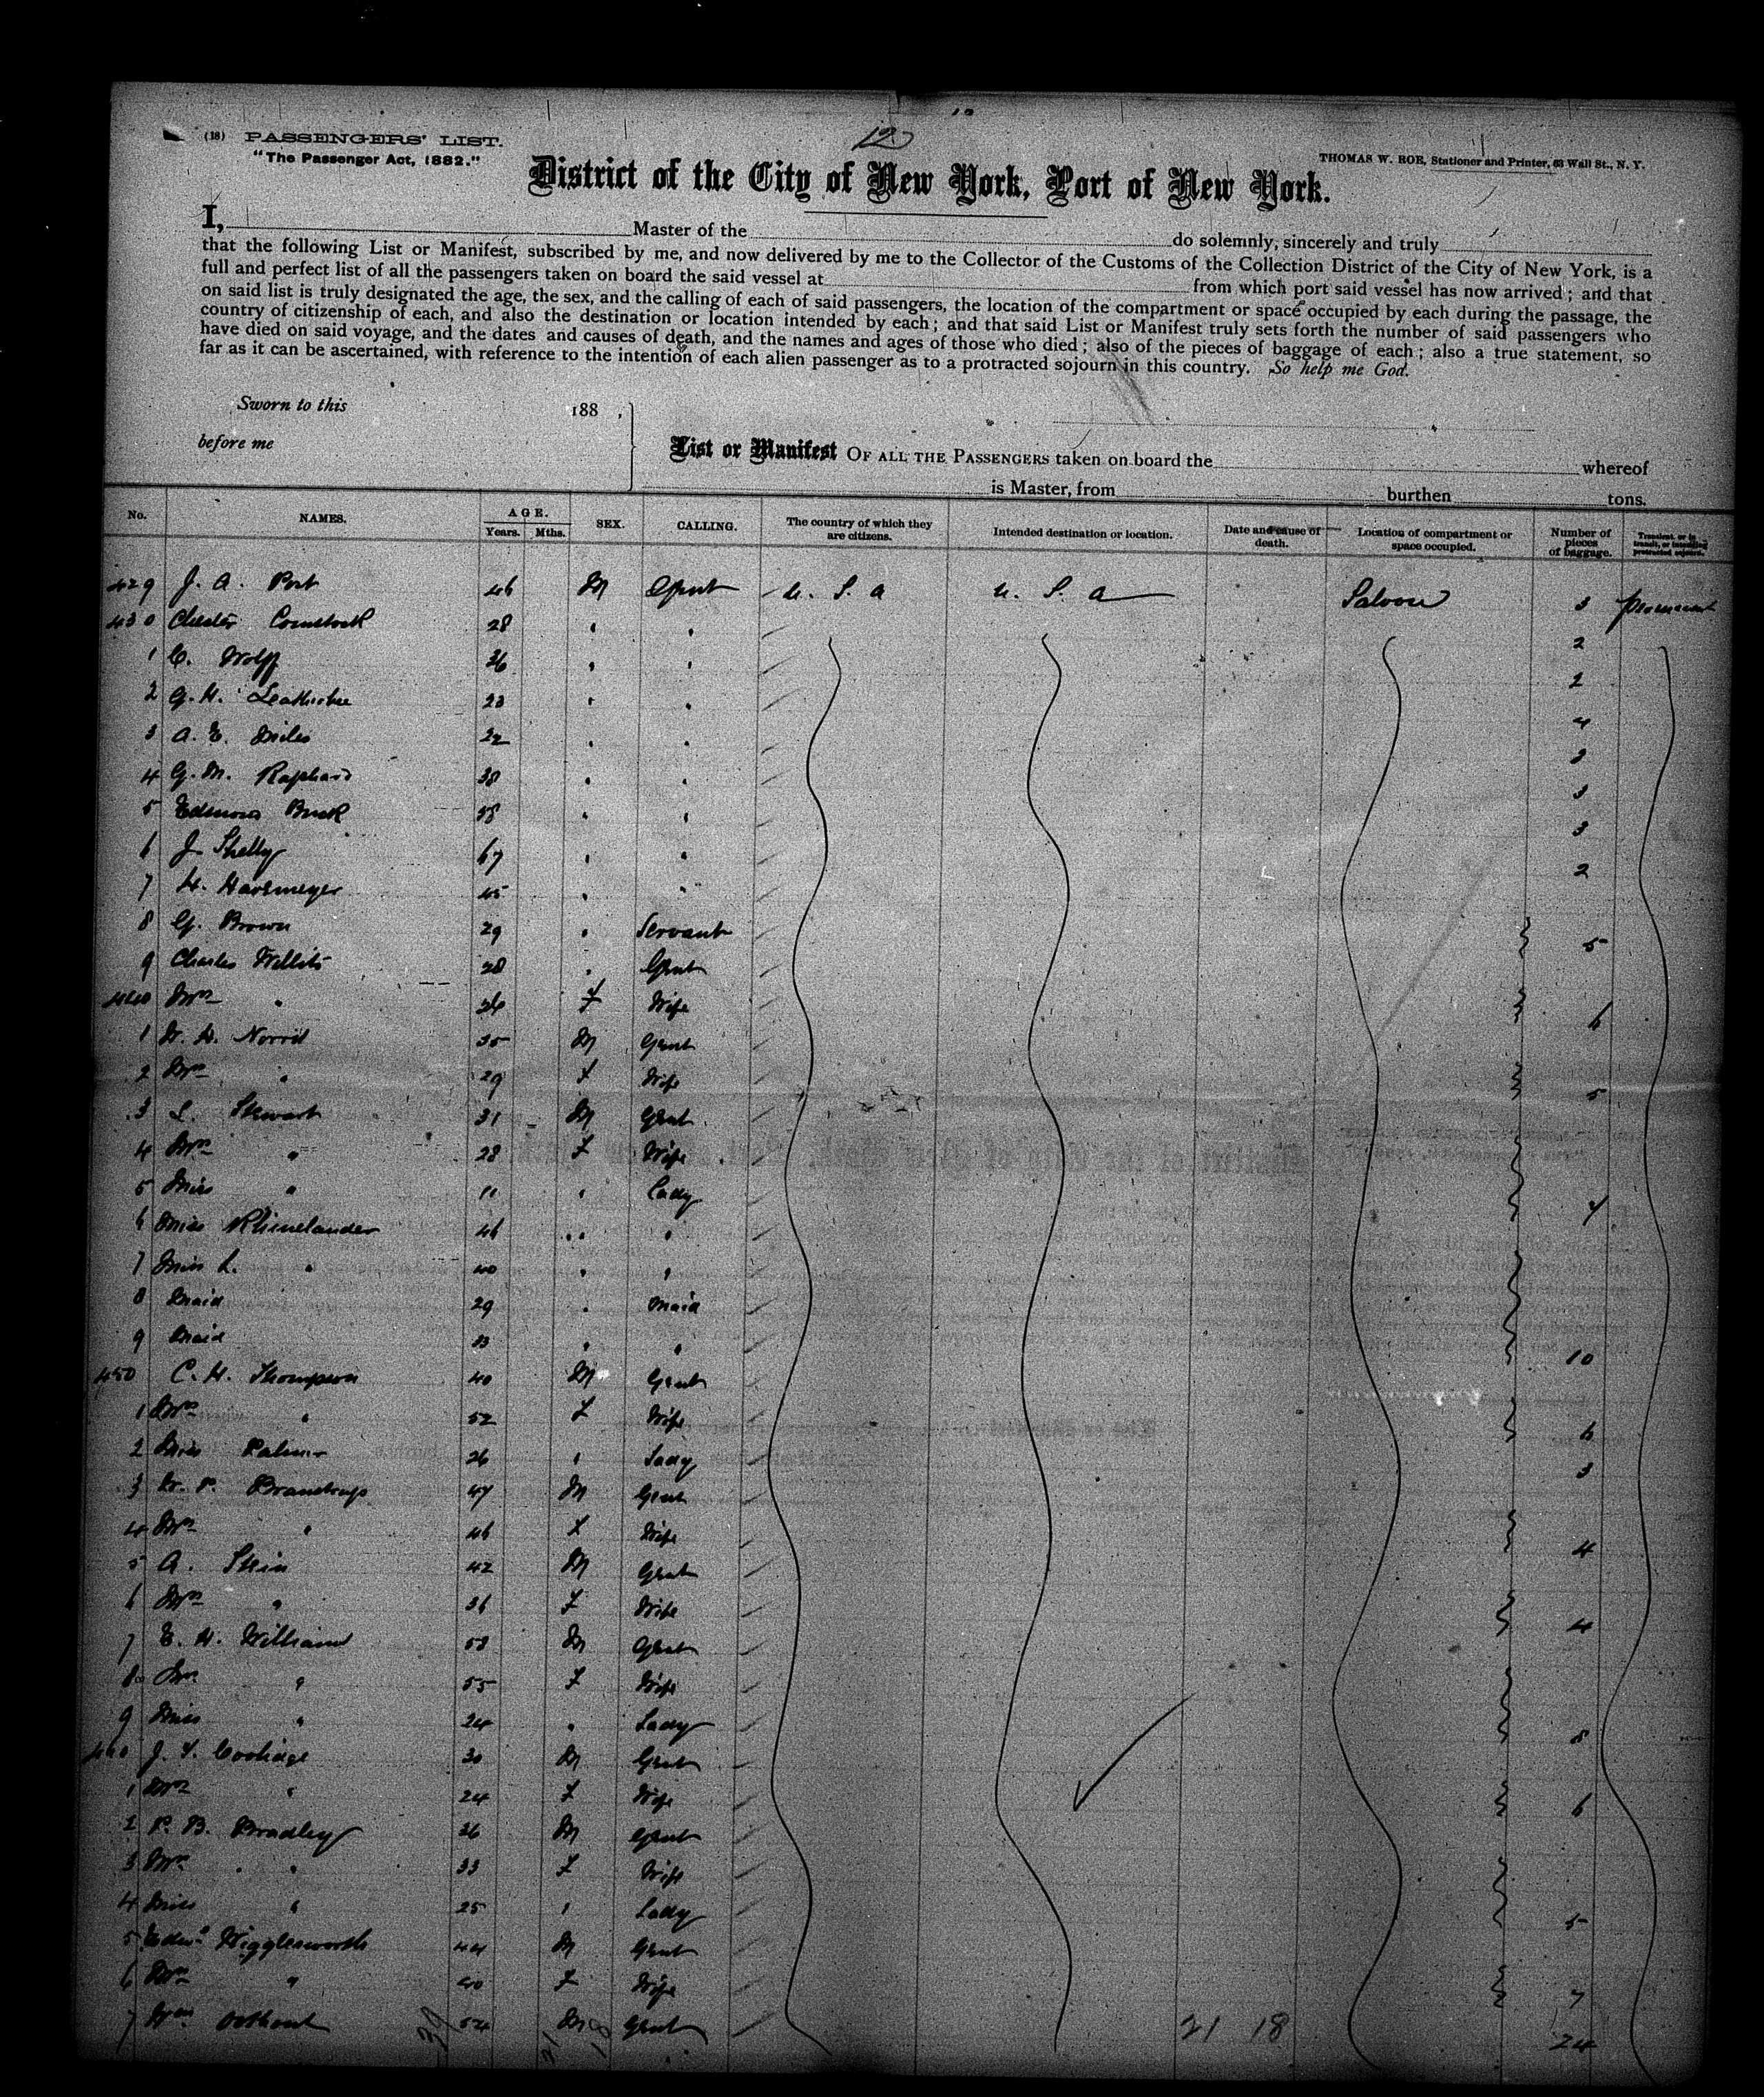 12
(18) PASSENGERS' LIST.
"The Passenger Act, 1882."
THOMAS W. ROE, Stationer and Printer, 63 Wall St., N. Y.
District of the City of New York, Port of New York.
I, Master of the do solemnly, sincerely and truly
that the following List or Manifest, subscribed by me, and now delivered by me to the Collector of the Customs of the Collection District of the City of New York, is a
full and perfect list of all the passengers taken on board the said vessel at from which port said vessel has now arrived; and that
on said list is truly designated the age, the sex, and the calling of each of said passengers, the location of the compartment or space occupied by each during the passage, the
country of citizenship of each, and also the destination or location intended by each; and that said List or Manifest truly sets forth the number of said passengers who
have died on said voyage, and the dates and causes of death, and the names and ages of those who died; also of the pieces of baggage of each; also a true statement, so
far as it can be ascertained, with reference to the intention of each alien passenger as to a protracted sojourn in this country. So help me God.
Sworn to this 188 ,
before me
List or Manifest OF ALL THE PASSENGERS taken on board the whereof
is Master, from burthen tons.
No. NAMES. AGE. Years. Mths. SEX. CALLING. The country of which they are citizens. Intended destination or location. Date and cause of death. Location of compartment or space occupied. Number of pieces of baggage. Transient, or in transit, or intending protracted sojourn.
429 J. A. Post 46 M Gent U. S. A U. S. A Saloon 3
430 Chester Comstock 28 " " 2
1 C. Wolff 36 " " 2
2 G. H. 23 " " 4
3 A. E. Miles 22 " " 3
4 G. M. Raphael 38 " " 3
5 Edmond " " 3
6 J. Shelly 67 " " 2
7 H. Havemeyer 45 " "
8 G. Brown 29 " Servant 5
9 Charles Willits 28 " Gent
440 Mrs " 26 F Wife 6
1 H. Norris 35 M Gent
2 Mrs " 29 F Wife 5
3 L. Stewart 31 M Gent
4 Mrs " 28 F Wife
5 Miss " 11 " Lady 4
6 Miss Rhinelander 46 " "
7 Miss L. " 40 " "
8 Maid 29 " Maid
9 Maid " " 10
450 C. H. Thompson 40 M Gent
1 Mrs " 52 F Wife 6
2 Miss Palmer 26 " Lady 3
3 P. 47 M Gent
4 Mrs " 46 F Wife 4
5 A. Stein 42 M Gent
6 Mrs " 36 F Wife 4
7 E. H. Williams 58 M Gent
8 Mrs " 55 F Wife
9 Miss " 24 " Lady 8
460 J. T. Coolidge 30 M Gent
1 Mrs " 24 F Wife 6
2 P. B. Bradley 36 M Gent
3 Mrs " 33 F Wife
4 Miss " 25 " Lady 5
5 Edwd Wigglesworth 44 M Gent
6 Mrs " 40 F Wife 7
7 Wm Oothout 54 M Gent 24
39 21 18 21 18